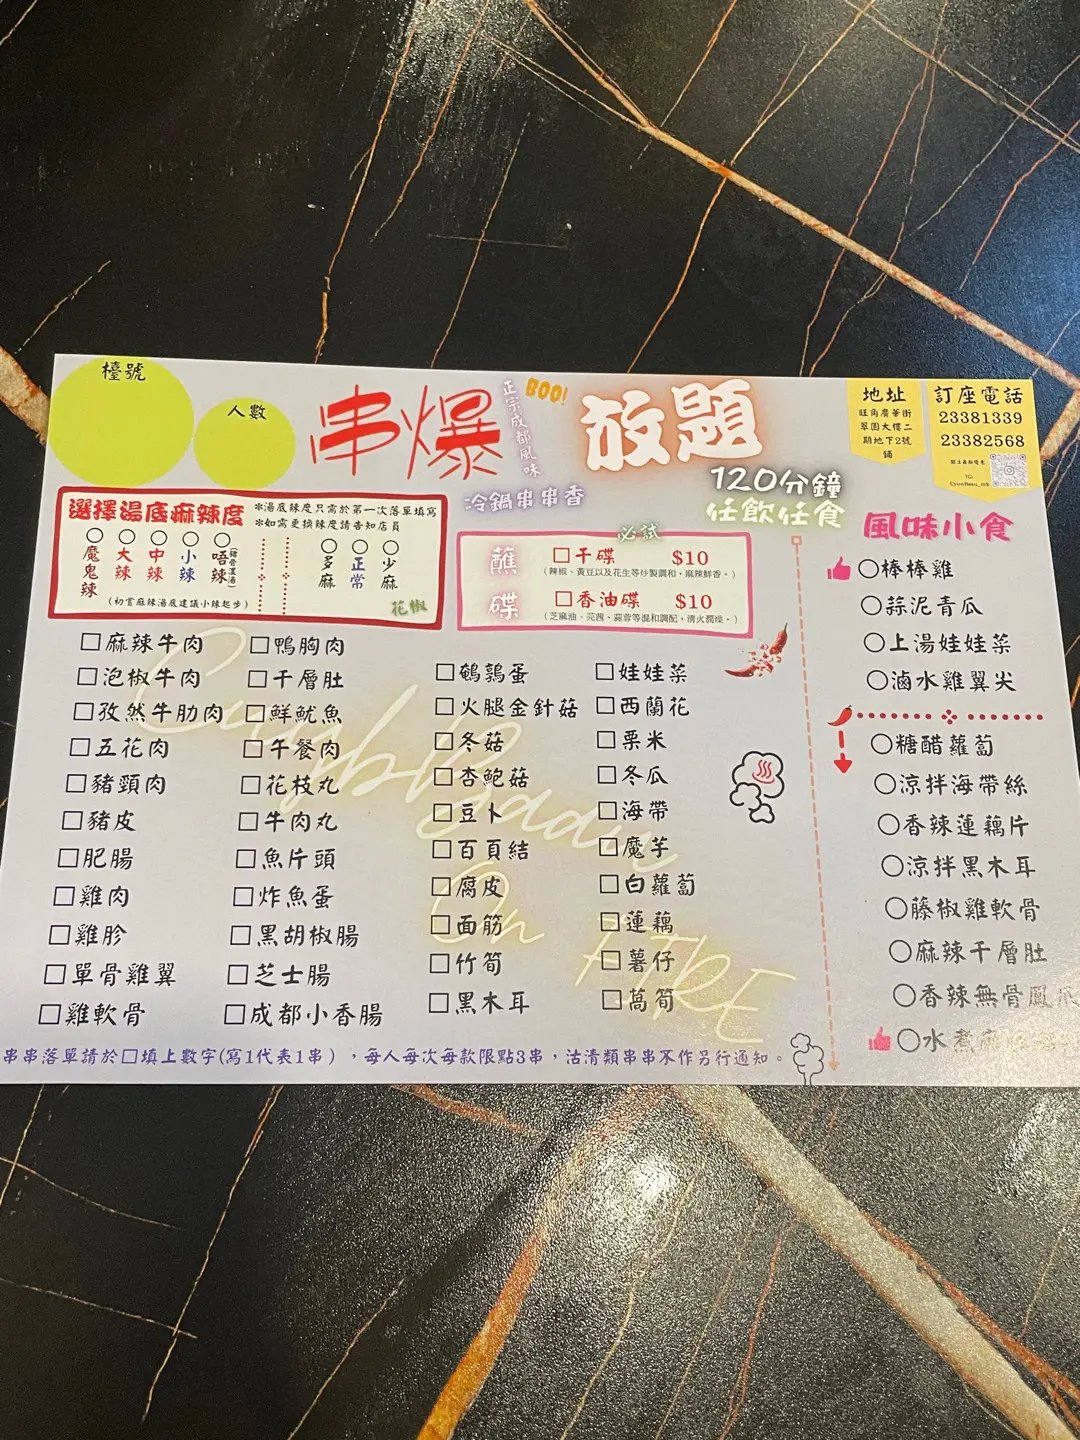 檯號
人數
串爆
正宗成都風味
BOO!
放題
120分鐘
任飲任食
冷鍋串串香
地址
旺角廣華街
翠園大樓二
期地下2號
舖
訂座電話
23381339
23382568
關注最新優惠
IG:
選擇湯底麻辣度
*湯底辣度只需於第一次落單填寫
*如需更換辣度請告知店員
○魔鬼辣
○大辣
○中辣
○小辣
○唔辣(豬骨濃湯)
○多麻
○正常
○少麻
(初嘗麻辣湯底建議小辣起步)
花椒
必試
蘸碟
□干碟 $10
(辣椒、黃豆以及花生等炒製調和,麻辣鮮香。)
□香油碟 $10
(芝麻油、芫茜、蒜蓉等混和調配,清火潤燥。)
□麻辣牛肉
□泡椒牛肉
□孜然牛肋肉
□五花肉
□豬頸肉
□豬皮
□肥腸
□雞肉
□雞胗
□單骨雞翼
□雞軟骨
□鴨胸肉
□千層肚
□鮮魷魚
□午餐肉
□花枝丸
□牛肉丸
□魚片頭
□炸魚蛋
□黑胡椒腸
□芝士腸
□成都小香腸
□鵪鶉蛋
□火腿金針菇
□冬菇
□杏鮑菇
□豆卜
□百頁結
□腐皮
□面筋
□竹筍
□黑木耳
□娃娃菜
□西蘭花
□栗米
□冬瓜
□海帶
□魔芋
□白蘿蔔
□蓮藕
□薯仔
□萵筍
On FIRE
風味小食
○棒棒雞
○蒜泥青瓜
○上湯娃娃菜
○滷水雞翼尖
○糖醋蘿蔔
○涼拌海帶絲
○香辣蓮藕片
○涼拌黑木耳
○藤椒雞軟骨
○麻辣千層肚
○香辣無骨鳳爪
○水煮
串串落單請於□填上數字(寫1代表1串),每人每次每款限點3串,沽清類串串不作另行通知。